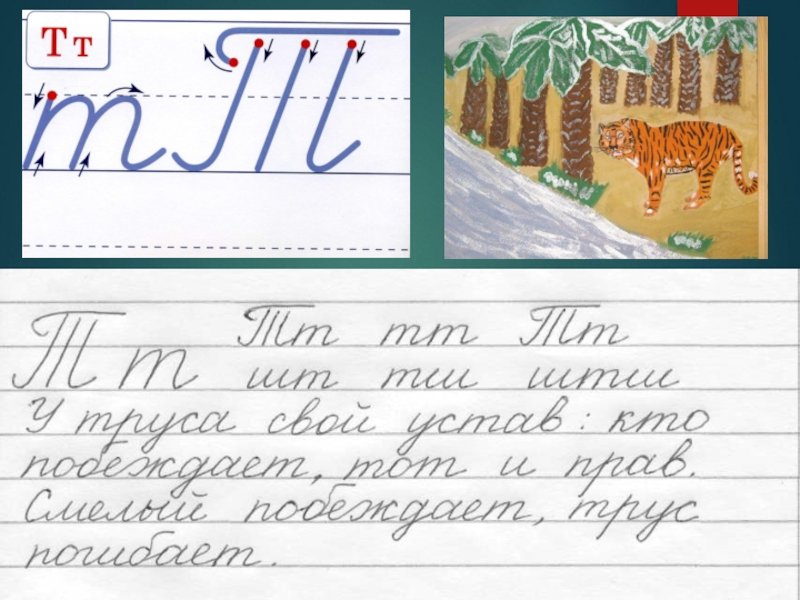 Т т
т Т
Тт тт Тт
Т т
шт тш штш
У труса свой устав: кто
побеждает, тот и прав.
Смелый побеждает, трус
погибает.